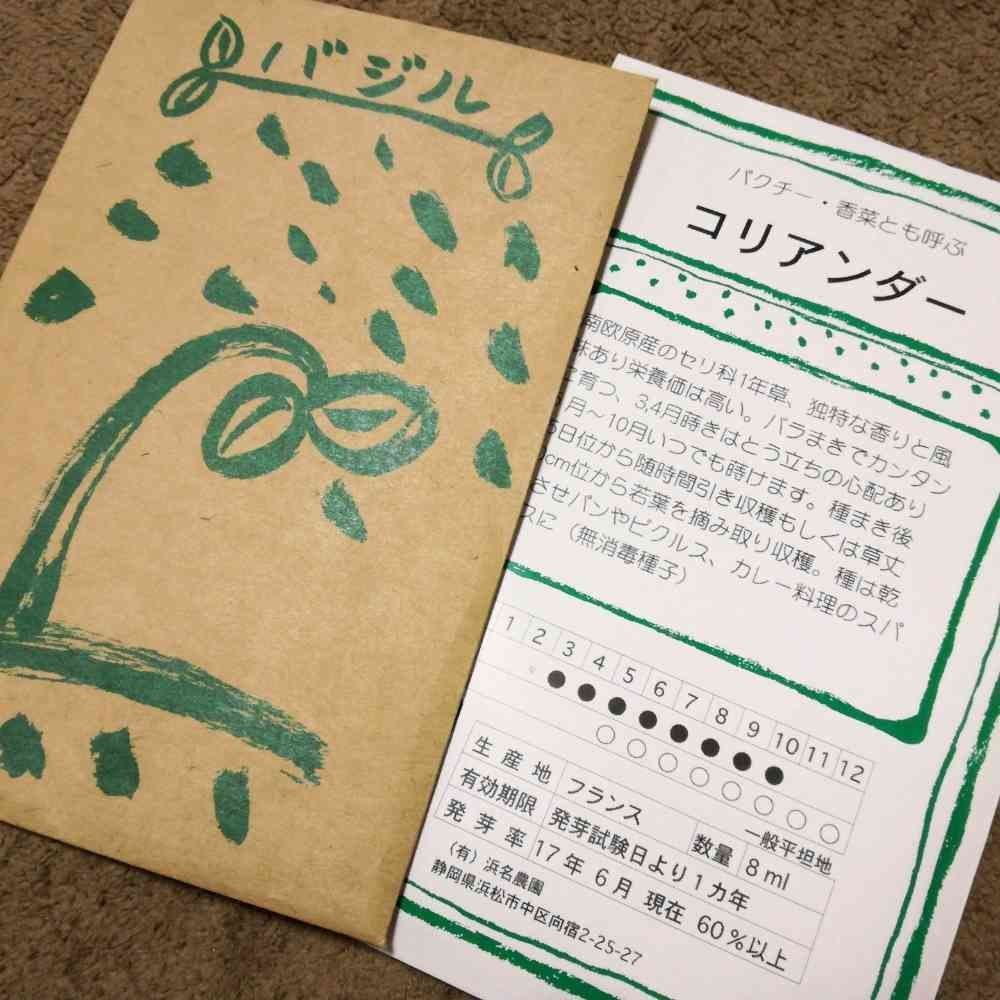 バジル
パクチー・香菜とも呼ぶ
コリアンダー
南欧原産のセリ科1年草、独特な香りと風
味あり栄養価は高い。バラまきでカンタン
育つ、3,4月蒔きはとう立ちの心配あり
月～10月いつでも蒔けます。種まき後
日位から随時間引き収穫もしくは草丈
cm位から若葉を摘み取り収穫。種は乾
させパンやピクルス、カレー料理のスパ
スに（無消毒種子）
1 2 3 4 5 6 7 8 9 10 11 12
一般平坦地
生産地 フランス 数量 8ml
有効期限 発芽試験日より1カ年
発芽率 17年 6月 現在 60%以上
（有）浜名農園
静岡県浜松市中区向宿2-25-27